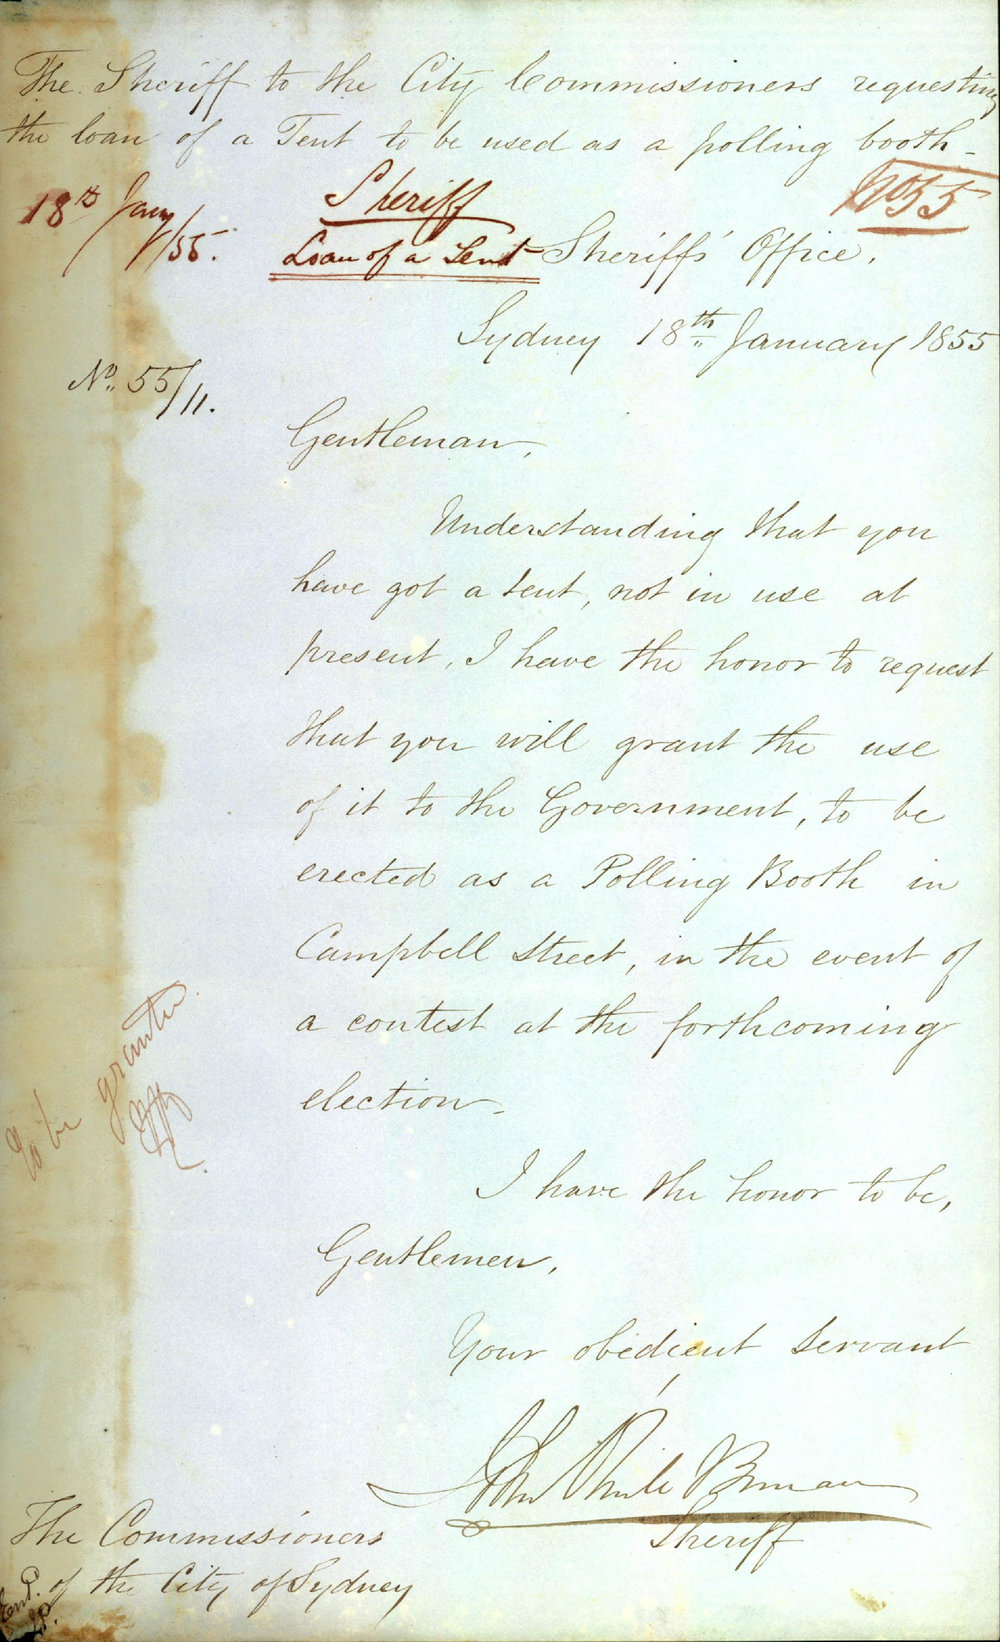 The Sheriff to the City Commissioners requesting
the loan of a Tent to be used as a polling booth -
18th Jany/55.
Sheriff
Loan of a Tent
No 55
Sheriff's Office,
Sydney 18th January 1855
No. 55/11.
Gentleman,
Understanding that you
have got a tent, not in use at
present, I have the honor to request
that you will grant the use
of it to the Government, to be
erected as a Polling Booth in
Campbell Street, in the event of
a contest at the forthcoming
election.
To be granted
I have the honor to be,
Gentlemen,
Your obedient servant
John
Sheriff
The Commissioners
of the City of Sydney
Ent'd.